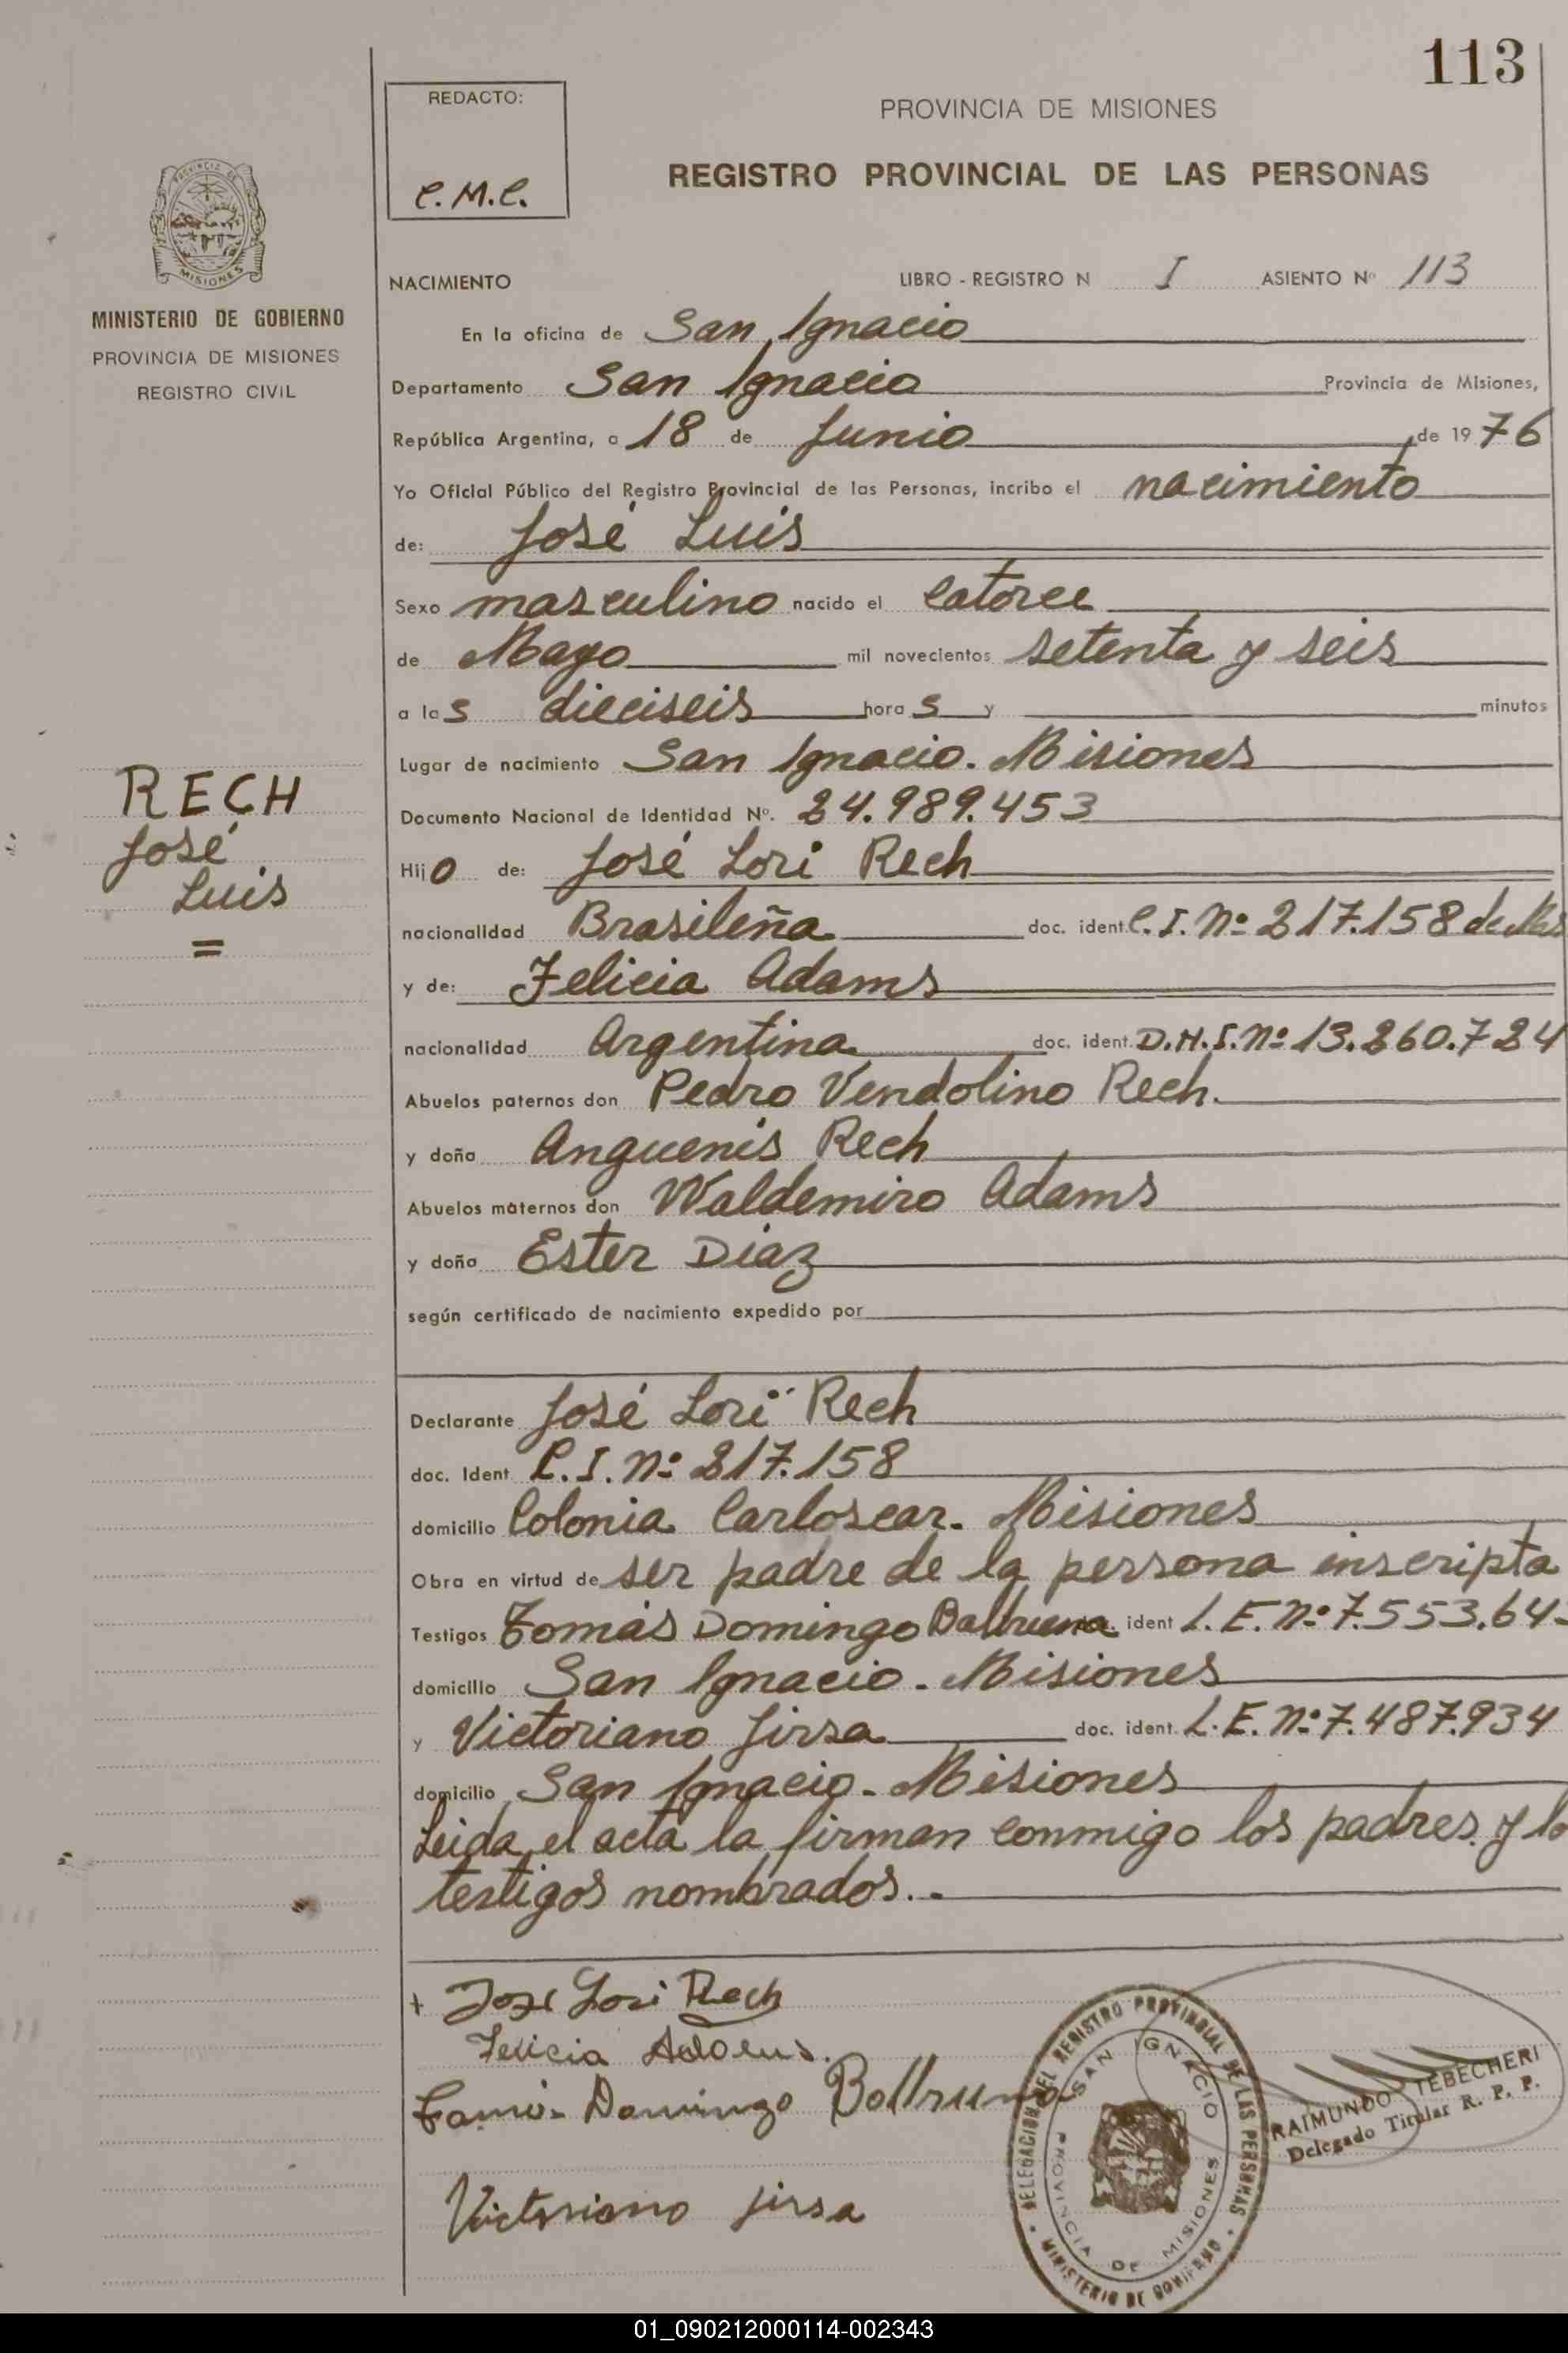 113
REDACTO:
C.M.C.
PROVINCIA DE MISIONES
REGISTRO PROVINCIAL DE LAS PERSONAS
PROVINCIA DE
MISIONES
MINISTERIO DE GOBIERNO
PROVINCIA DE MISIONES
REGISTRO CIVIL
NACIMIENTO LIBRO - REGISTRO N I ASIENTO Nº 113
En la oficina de San Ignacio
Departamento San Ignacio Provincia de Misiones,
República Argentina, a 18 de Junio de 1976
Yo Oficial Público del Registro Provincial de las Personas, incribo el nacimiento
de: José Luis
Sexo masculino nacido el Catorce
de Mayo mil novecientos setenta y seis
a las dieciseis horas y minutos
Lugar de nacimiento San Ignacio. Misiones
Documento Nacional de Identidad Nº. 24.989.453
RECH
José
Luis
=
Hijo de: José Lori Rech
nacionalidad Brasileña doc. ident. C.I. Nº 217.158 de Mis
y de: Felicia Adams
nacionalidad Argentina doc. ident. D.N.I. Nº 13.260.724
Abuelos paternos don Pedro Vendolino Rech.
y doña Anguenis Rech
Abuelos maternos don Waldemiro Adams
y doña Ester Diaz
según certificado de nacimiento expedido por
Declarante José Lori Rech
doc. Ident C.I. Nº 217.158
domicilio Colonia Carloscar. Misiones
Obra en virtud de ser padre de la persona inscripta
Testigos Tomás Domingo ident L.E. Nº 7.553.64
domicilio San Ignacio. Misiones
y Victoriano Jirsa doc. ident. L.E. Nº 7.487.934
domicilio San Ignacio. Misiones
Leida el acta la firman conmigo los padres y lo
testigos nombrados..-
+ José Lori Rech
Felicia Adams.
Domingo
Victoriano Jirsa
DELEGACION DEL REGISTRO PROVINCIAL DE LAS PERSONAS
SAN IGNACIO
PROVINCIA DE MISIONES
MINISTERIO DE GOBIERNO
RAIMUNDO TEBECHERI
Delegado Titular R. P. P.
01_090212000114-002343